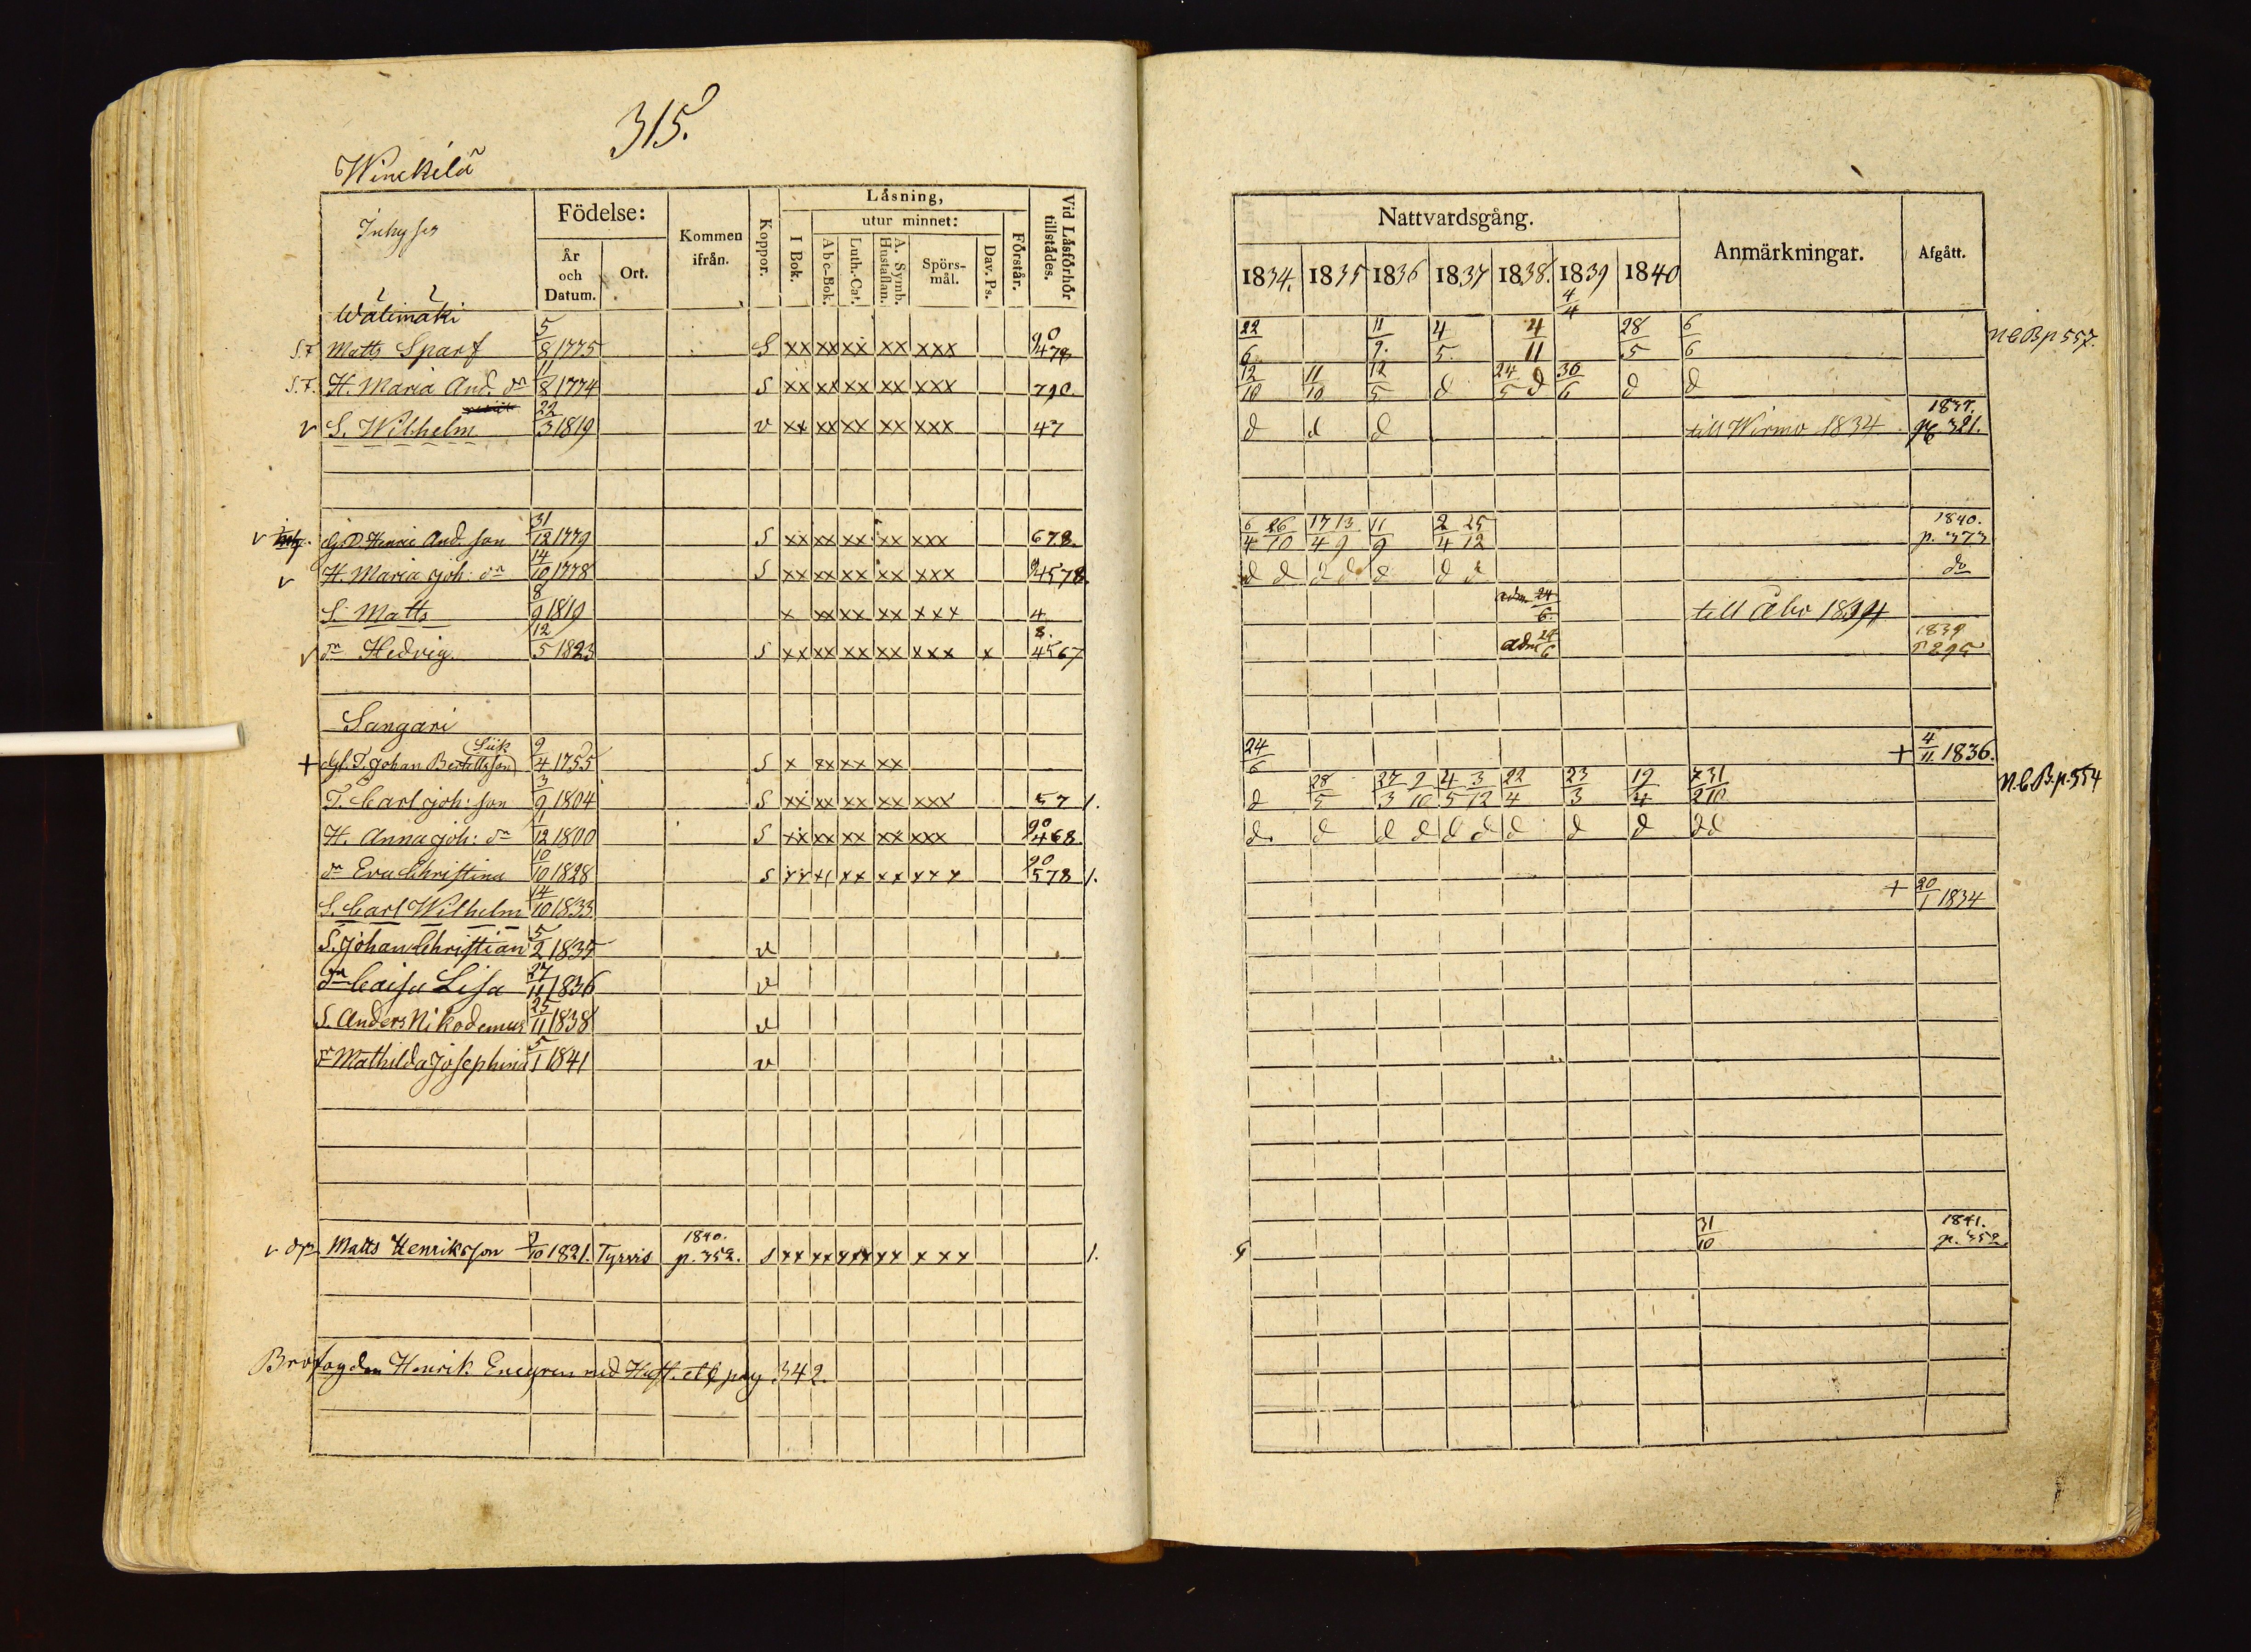 315.
Winckilä
Inhyses
Födelse:
År och Datum.
Ort.
Kommen ifrån.
Koppor.
Låsning,
I Bok.
utur minnet:
Abc-Bok.
Luth.-Cat.
A. Symb. Hustaflan.
Spörs-mål.
Dav. Ps.
Förstår.
Vid Låsförhör tillstådes.
Wälimäki
S.F. Matts Sparf 5/8 1775 S xx xx xx xx xxx 90 478
S.F. H. Maria And. dr 11/8 1774 S xx xx xx xx xxx 790.
v S. Wilhelm 22/3 1819 v xx xx xx xx xxx 47
v Henric And. son 31/12 1779 S xx xx xx xx xxx 678.
v H. Maria Joh: dr 14/10 1778 S xx xx xx xx xxx 24578.
S. Matts 8/9 1819 x xx xx xx xxx 4.
v dr Hedvig 12/5 1823 S xx xx xx xx xxx x 8. 4567
Sangari
+ Gl. T. Johan Bertellsson (Siik 9/4 1755 S x xx xx xx
T. Carl Joh: son 3/9 1804 S xx xx xx xx xxx 57 1.
H. Anna Joh: dr 1/12 1800 S xx xx xx xx xxx 90 468.
dr Eva Christina 10/10 1828 S xx xx xx xx xxx 90 578 1.
S. Carl Wilhelm 14/10 1833
S. Johan Christian 5/2 1835 v
dr Caisa Lisa 27/11 1836 v
S. Anders Nikodemus 25/11 1838 v
dr Mathilda Josephina 5/1 1841 v
v dr. Matts Henriksson 9/10 1821. Tyrvis 1840. p. 352. S xx xx xxx xx xxx 1.
Brofogden Henrik Enegren med Hust. pag. 342.
Nattvardsgång.
Anmärkningar.
Afgått.
1834. 1835 1836 1837 1838. 1839 1840
4/4
22/6 11/9. 4/5. 4/11 28/5 6/6 N.C.B. p. 557.
12/10 11/10 12/5 d 24/5 d 30/6 d d
d d d till Wirmo 1834 1837. pg 321.
6/4 26/10 17/4 13/9 11/9 2/4 25/12 1840. p. 373
d d d d d d d do
adm. 24/6. till Åbo 1834
adm 24/6 1839 p 295
24/6 + 4/11 1836.
d 28/5 27/3 2/10 4/5 3/12 22/4 23/3 12/4 7/2 31/10 N.C.B. p. 554
d. d d d d d d d d d d
+ 20/1 1834
31/10 1841. p. 352.